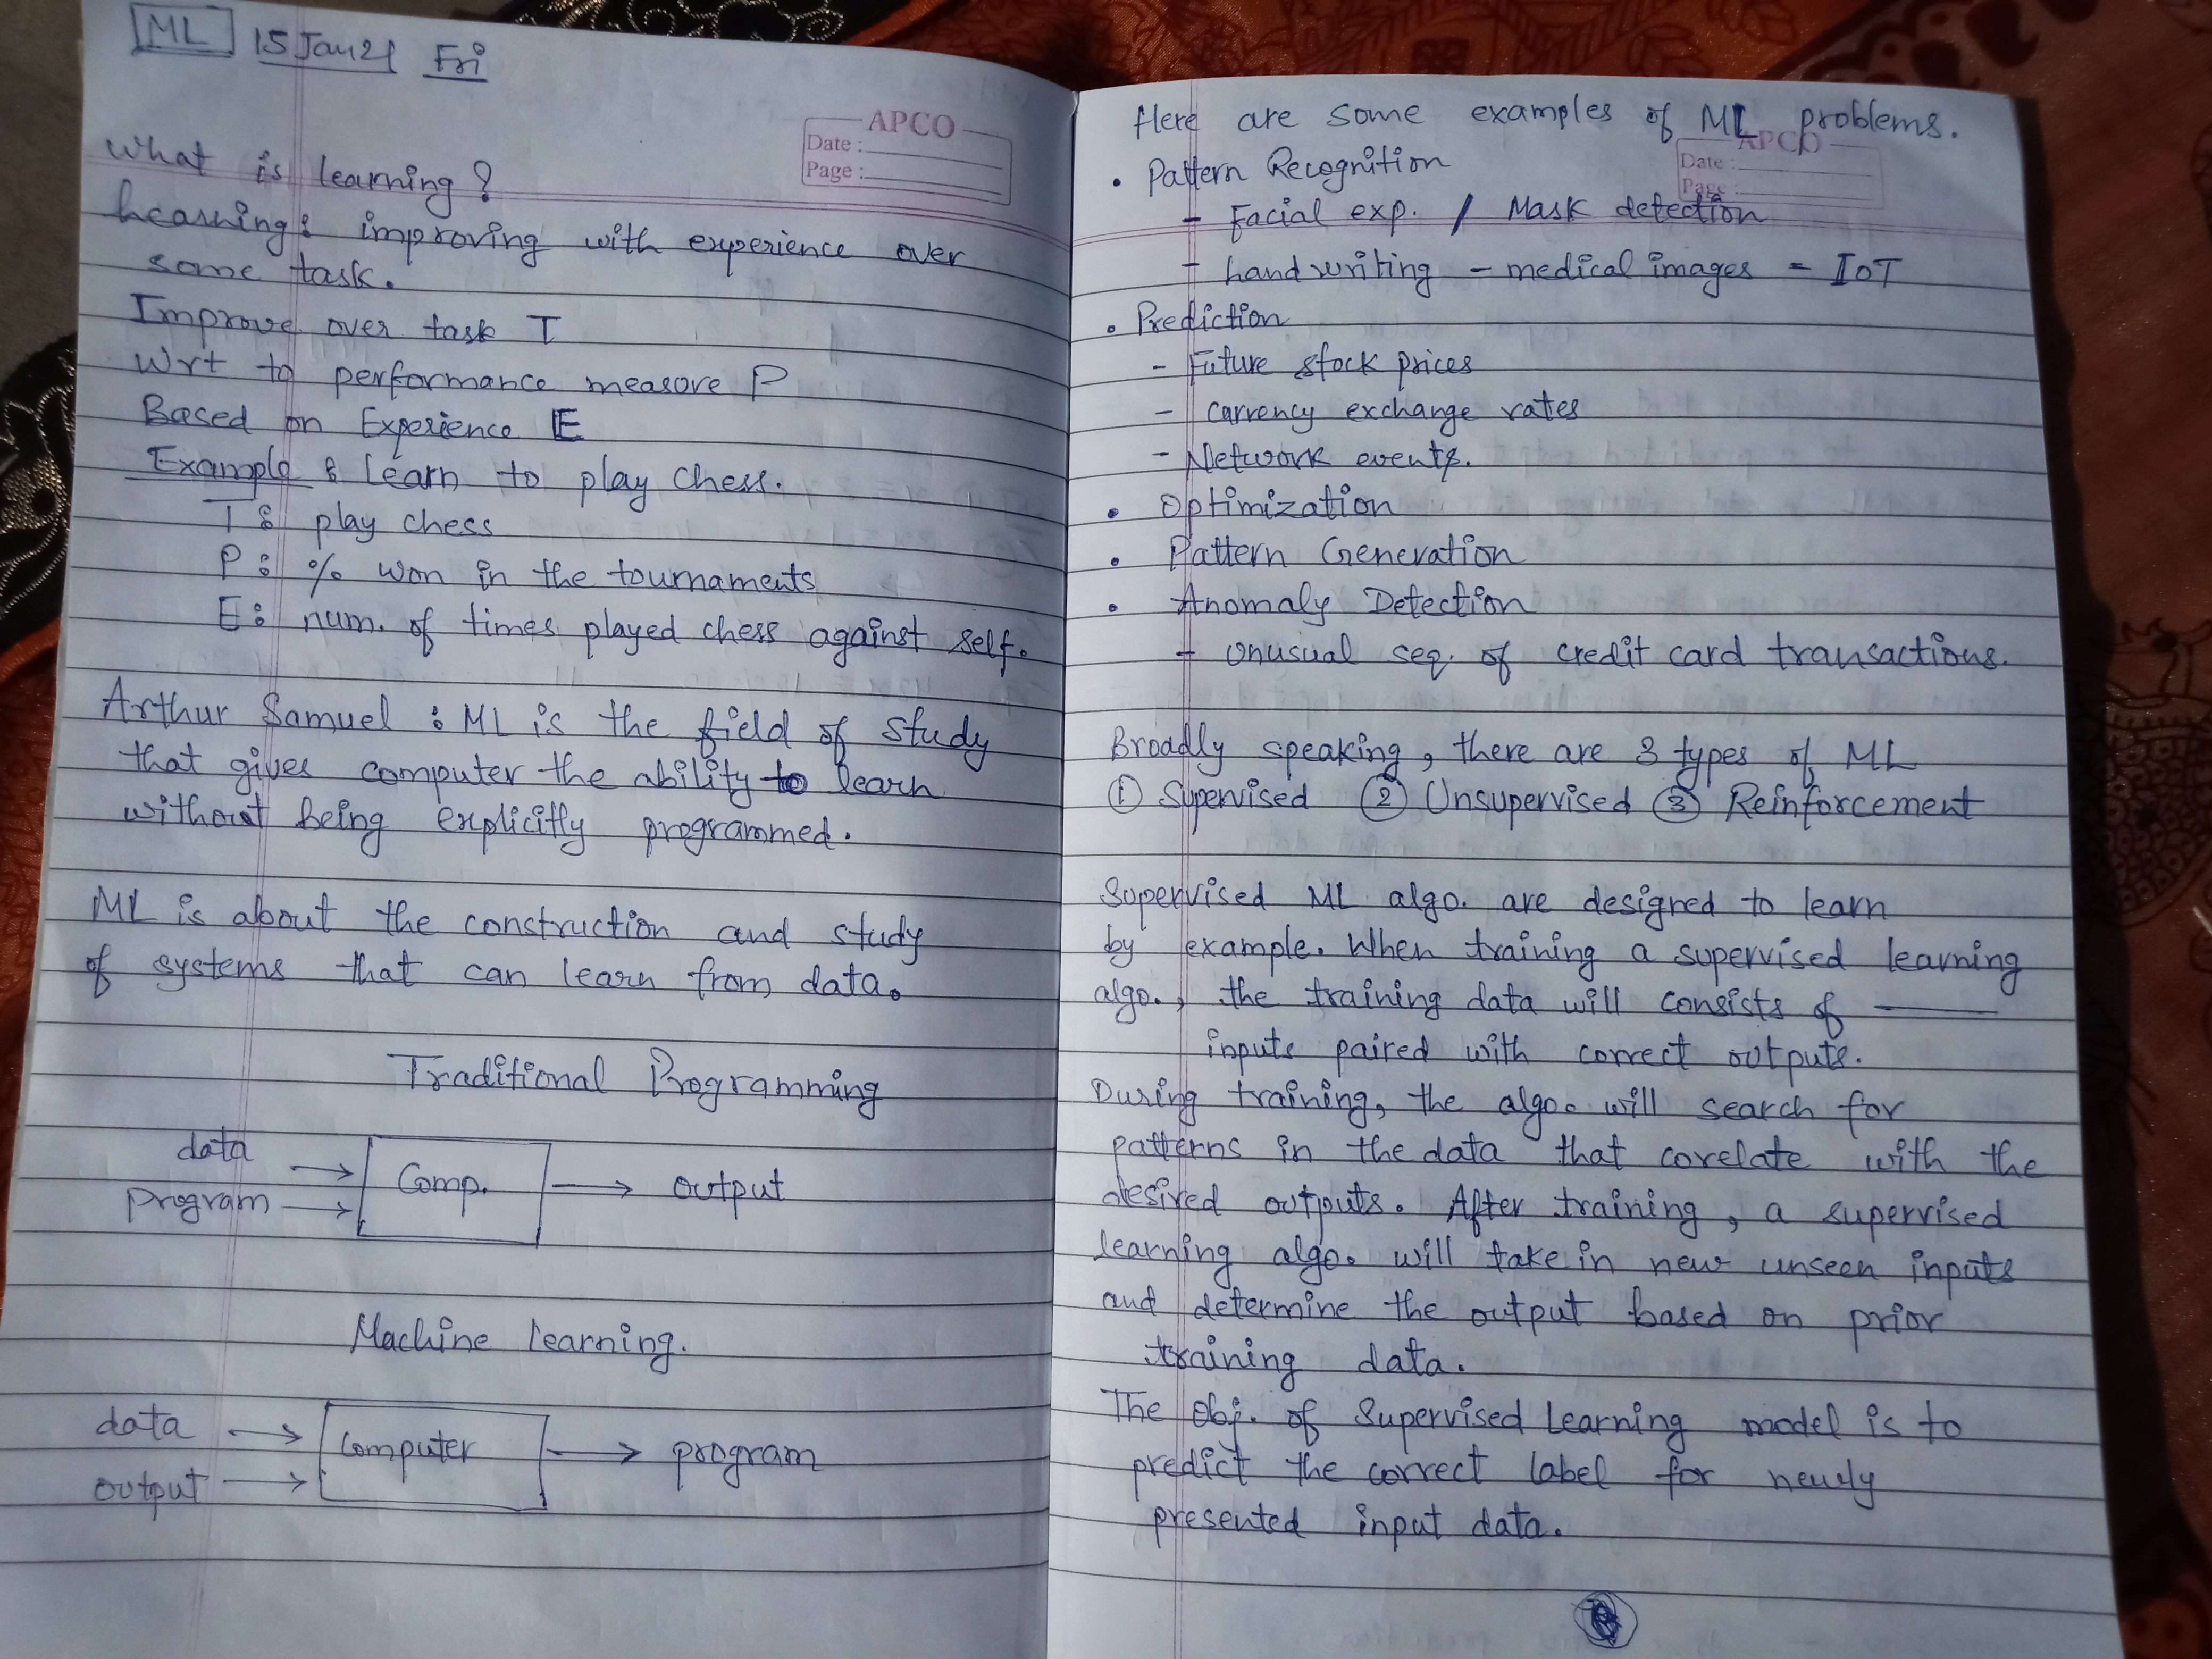 ML 15 Jan 21 Fri
APCO
Date :
Page :
What is learning?
Learning: improving with experience over
some task.
Improve over task T
Wrt to performance measure P
Based on Experience E
Example : Learn to play chess.
T : play chess
P : % won in the tournaments
E : num. of times played chess against self.
Arthur Samuel : ML is the field of study
that gives computer the ability to learn
without being explicitly programmed.
ML is about the construction and study
of systems that can learn from data.
Traditional Programming
data
program
Comp.
output
Machine Learning.
data
output
Computer
program
Here are some examples of ML problems.
APCO
Date :
Page :
• Pattern Recognition
- Facial exp. / Mask detection
- handwriting - medical images - IoT
• Prediction
- Future stock prices
- currency exchange rates
- Network events.
• Optimization
• Pattern Generation
• Anomaly Detection
- unusual seq. of credit card transactions.
Broadly speaking, there are 3 types of ML
① Supervised ② Unsupervised ③ Reinforcement
Supervised ML algo. are designed to learn
by example. When training a supervised learning
algo., the training data will consists of
inputs paired with correct outputs.
During training, the algo. will search for
patterns in the data that corelate with the
desired outputs. After training, a supervised
learning algo. will take in new unseen inputs
and determine the output based on prior
training data.
The obj. of Supervised Learning model is to
predict the correct label for newly
presented input data.